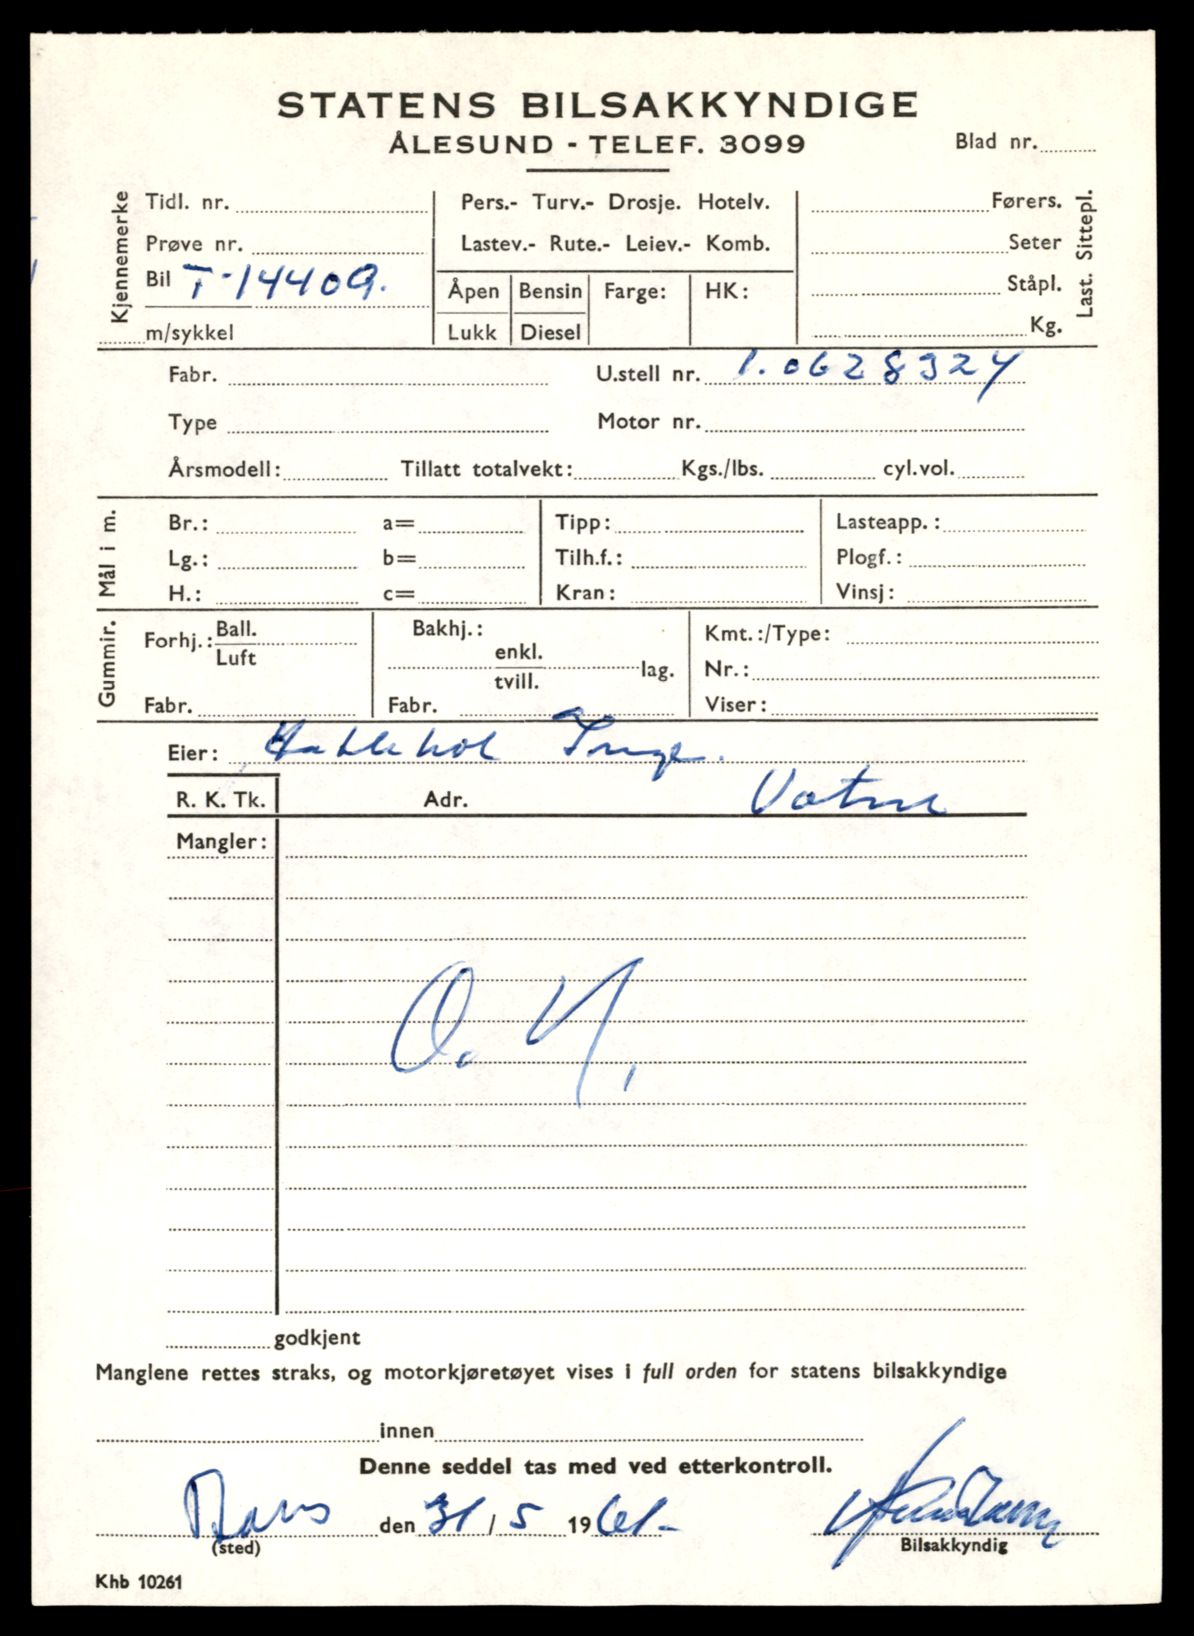 STATENS BILSAKKYNDIGE
ÅLESUND - TELEF. 3099
Blad nr.
Kjennemerke
Tidl. nr.
Prøve nr.
Bil T-14409.
m/sykkel
Pers.- Turv.- Drosje. Hotelv.
Lastev.- Rute.- Leiev.- Komb.
Åpen Bensin Farge: HK:
Lukk Diesel
Førers.
Seter
Ståpl.
Kg.
Last. Sittepl.
Fabr. U.stell nr. 1.0628324
Type Motor nr.
Årsmodell: Tillatt totalvekt: Kgs./lbs. cyl.vol.
Mål i m.
Br.: a= Tipp: Lasteapp.:
Lg.: b= Tilh.f.: Plogf.:
H.: c= Kran: Vinsj:
Gummir.
Forhj.: Ball. Luft
Fabr.
Bakhj.:
enkl.
tvill. lag.
Fabr.
Kmt.:/Type:
Nr.:
Viser:
Eier: Inge.
R. K. Tk. Adr. Vatne
Mangler:
O. K.
godkjent
Manglene rettes straks, og motorkjøretøyet vises i full orden for statens bilsakkyndige
innen
Denne seddel tas med ved etterkontroll.
den 31/5 1961-
(sted)
Bilsakkyndig
Khb 10261